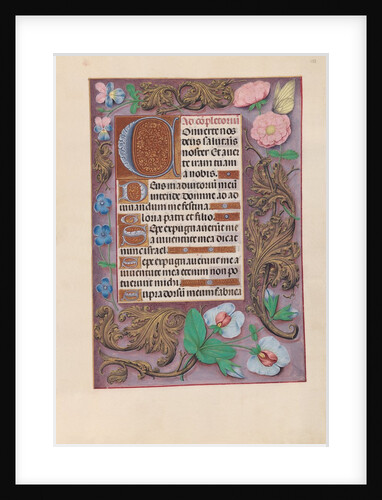 Ad cõpletoriũ
Onuerte nos
deus salutaris
noster Et auer
te iram tuam
a nobis.
Deus in adiutoriũ meũ
intende Domine ad ad
iuuandum me festina.
Gloria patri et filio.
Sepe expugnauerũt me a
iuuentute mea dicat
nunc israel.
Sepe expugnauerũt me a
iuuentute mea etenim non po
tuerunt michi.
Supra dorsũ meum fabrica